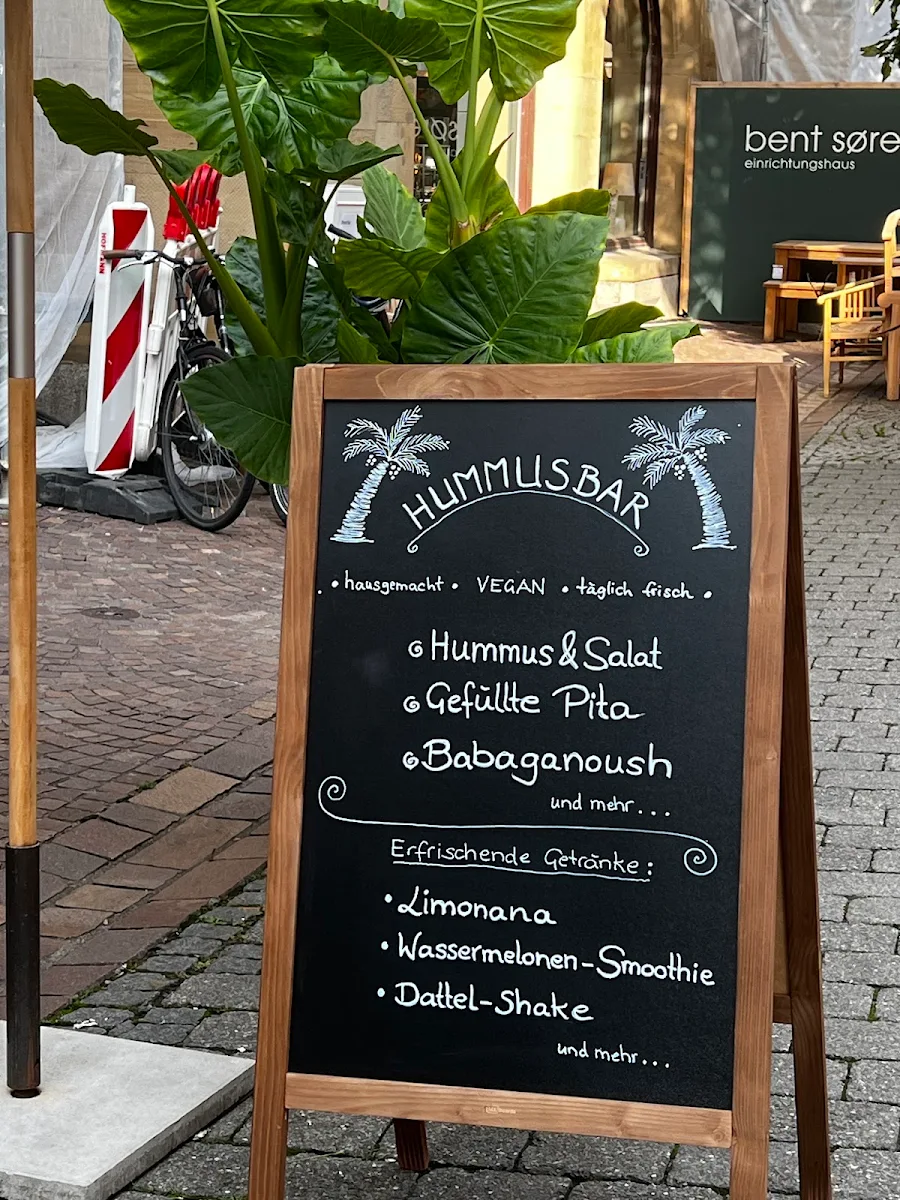 bent søre
einrichtungshaus
HOFMANN
HUMMUSBAR
• hausgemacht • VEGAN • täglich frisch •
Hummus & Salat
Gefüllte Pita
Babaganoush
und mehr...
Erfrischende Getränke:
• Limonana
• Wassermelonen-Smoothie
• Dattel-Shake
und mehr...